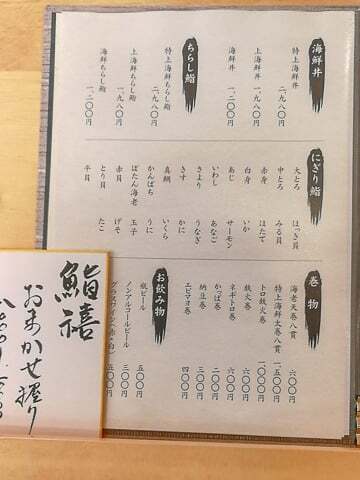 海鮮丼
特上海鮮丼 二、九八〇円
上海鮮丼 一、九八〇円
海鮮丼 一、二〇〇円
ちらし鮨
特上海鮮ちらし鮨 二、九八〇円
上海鮮ちらし鮨 一、九八〇円
海鮮ちらし鮨 一、二〇〇円
にぎり鮨
大とろ
ほっき貝
中とろ
みる貝
赤身
ほたて
白身
いか
あじ
サーモン
いわし
あなご
さより
うなぎ
きす
かに
真鯛
いくら
かんぱち
うに
ぼたん海老
玉子
赤貝
げそ
とり貝
たこ
平貝
巻物
海老天巻八貫 六〇〇円
特上海鮮太巻八貫 一、五〇〇円
トロ鉄火巻 一、〇〇〇円
鉄火巻 六〇〇円
ネギトロ巻 六〇〇円
かっぱ巻 二〇〇円
納豆巻 三〇〇円
エビマヨ巻 四〇〇円
お飲み物
瓶ビール 五〇〇円
ノンアルコールビール 三〇〇円
グラスワイン(赤・白) 五〇〇円
鮨禧
おまかせ握り